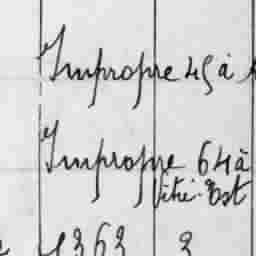 Impropre 45 à
Impropre 64 à
Vitré-Est
1363 2